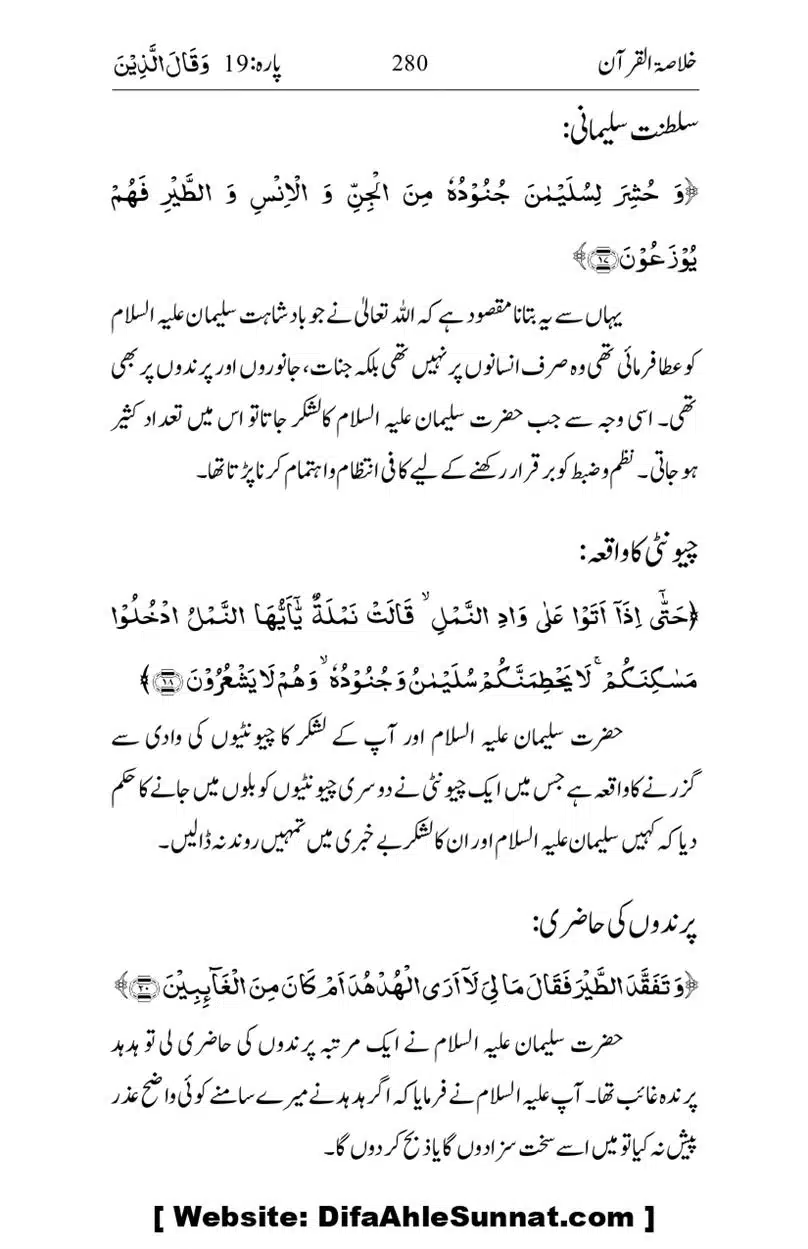 خلاصۃ القرآن 280 پارہ:19 وَقَالَ الَّذِيْنَ
سلطنت سلیمانی:
﴿وَ حُشِرَ لِسُلَيْمٰنَ جُنُوْدُهٗ مِنَ الْجِنِّ وَ الْاِنْسِ وَ الطَّيْرِ فَهُمْ
يُوْزَعُوْنَ ﴿۱۷﴾﴾
یہاں سے یہ بتانا مقصود ہے کہ اللہ تعالیٰ نے جو بادشاہت سلیمان علیہ السلام
کو عطا فرمائی تھی وہ صرف انسانوں پر نہیں تھی بلکہ جنات، جانوروں اور پرندوں پر بھی
تھی۔ اسی وجہ سے جب حضرت سلیمان علیہ السلام کا لشکر جاتا تو اس میں تعداد کثیر
ہو جاتی۔ نظم و ضبط کو برقرار رکھنے کے لیے کافی انتظام و اہتمام کرنا پڑتا تھا۔
چیونٹی کا واقعہ:
﴿حَتّٰۤى اِذَاۤ اَتَوْا عَلٰى وَادِ النَّمْلِ ۙ قَالَتْ نَمْلَةٌ يّٰۤاَيُّهَا النَّمْلُ ادْخُلُوْا
مَسٰكِنَكُمْ ۚ لَا يَحْطِمَنَّكُمْ سُلَيْمٰنُ وَ جُنُوْدُهٗ ۙ وَ هُمْ لَا يَشْعُرُوْنَ ﴿۱۸﴾﴾
حضرت سلیمان علیہ السلام اور آپ کے لشکر کا چیونٹیوں کی وادی سے
گزرنے کا واقعہ ہے جس میں ایک چیونٹی نے دوسری چیونٹیوں کو بلوں میں جانے کا حکم
دیا کہ کہیں سلیمان علیہ السلام اور ان کا لشکر بے خبری میں تمہیں روند نہ ڈالیں۔
پرندوں کی حاضری:
﴿وَ تَفَقَّدَ الطَّيْرَ فَقَالَ مَا لِيَ لَاۤ اَرَى الْهُدْهُدَ اَمْ كَانَ مِنَ الْغَآئِبِيْنَ ﴿۲۰﴾﴾
حضرت سلیمان علیہ السلام نے ایک مرتبہ پرندوں کی حاضری لی تو ہدہد
پرندہ غائب تھا۔ آپ علیہ السلام نے فرمایا کہ اگر ہدہد نے میرے سامنے کوئی واضح عذر
پیش نہ کیا تو میں اسے سخت سزا دوں گا یا ذبح کر دوں گا۔
[ Website: DifaAhleSunnat.com ]